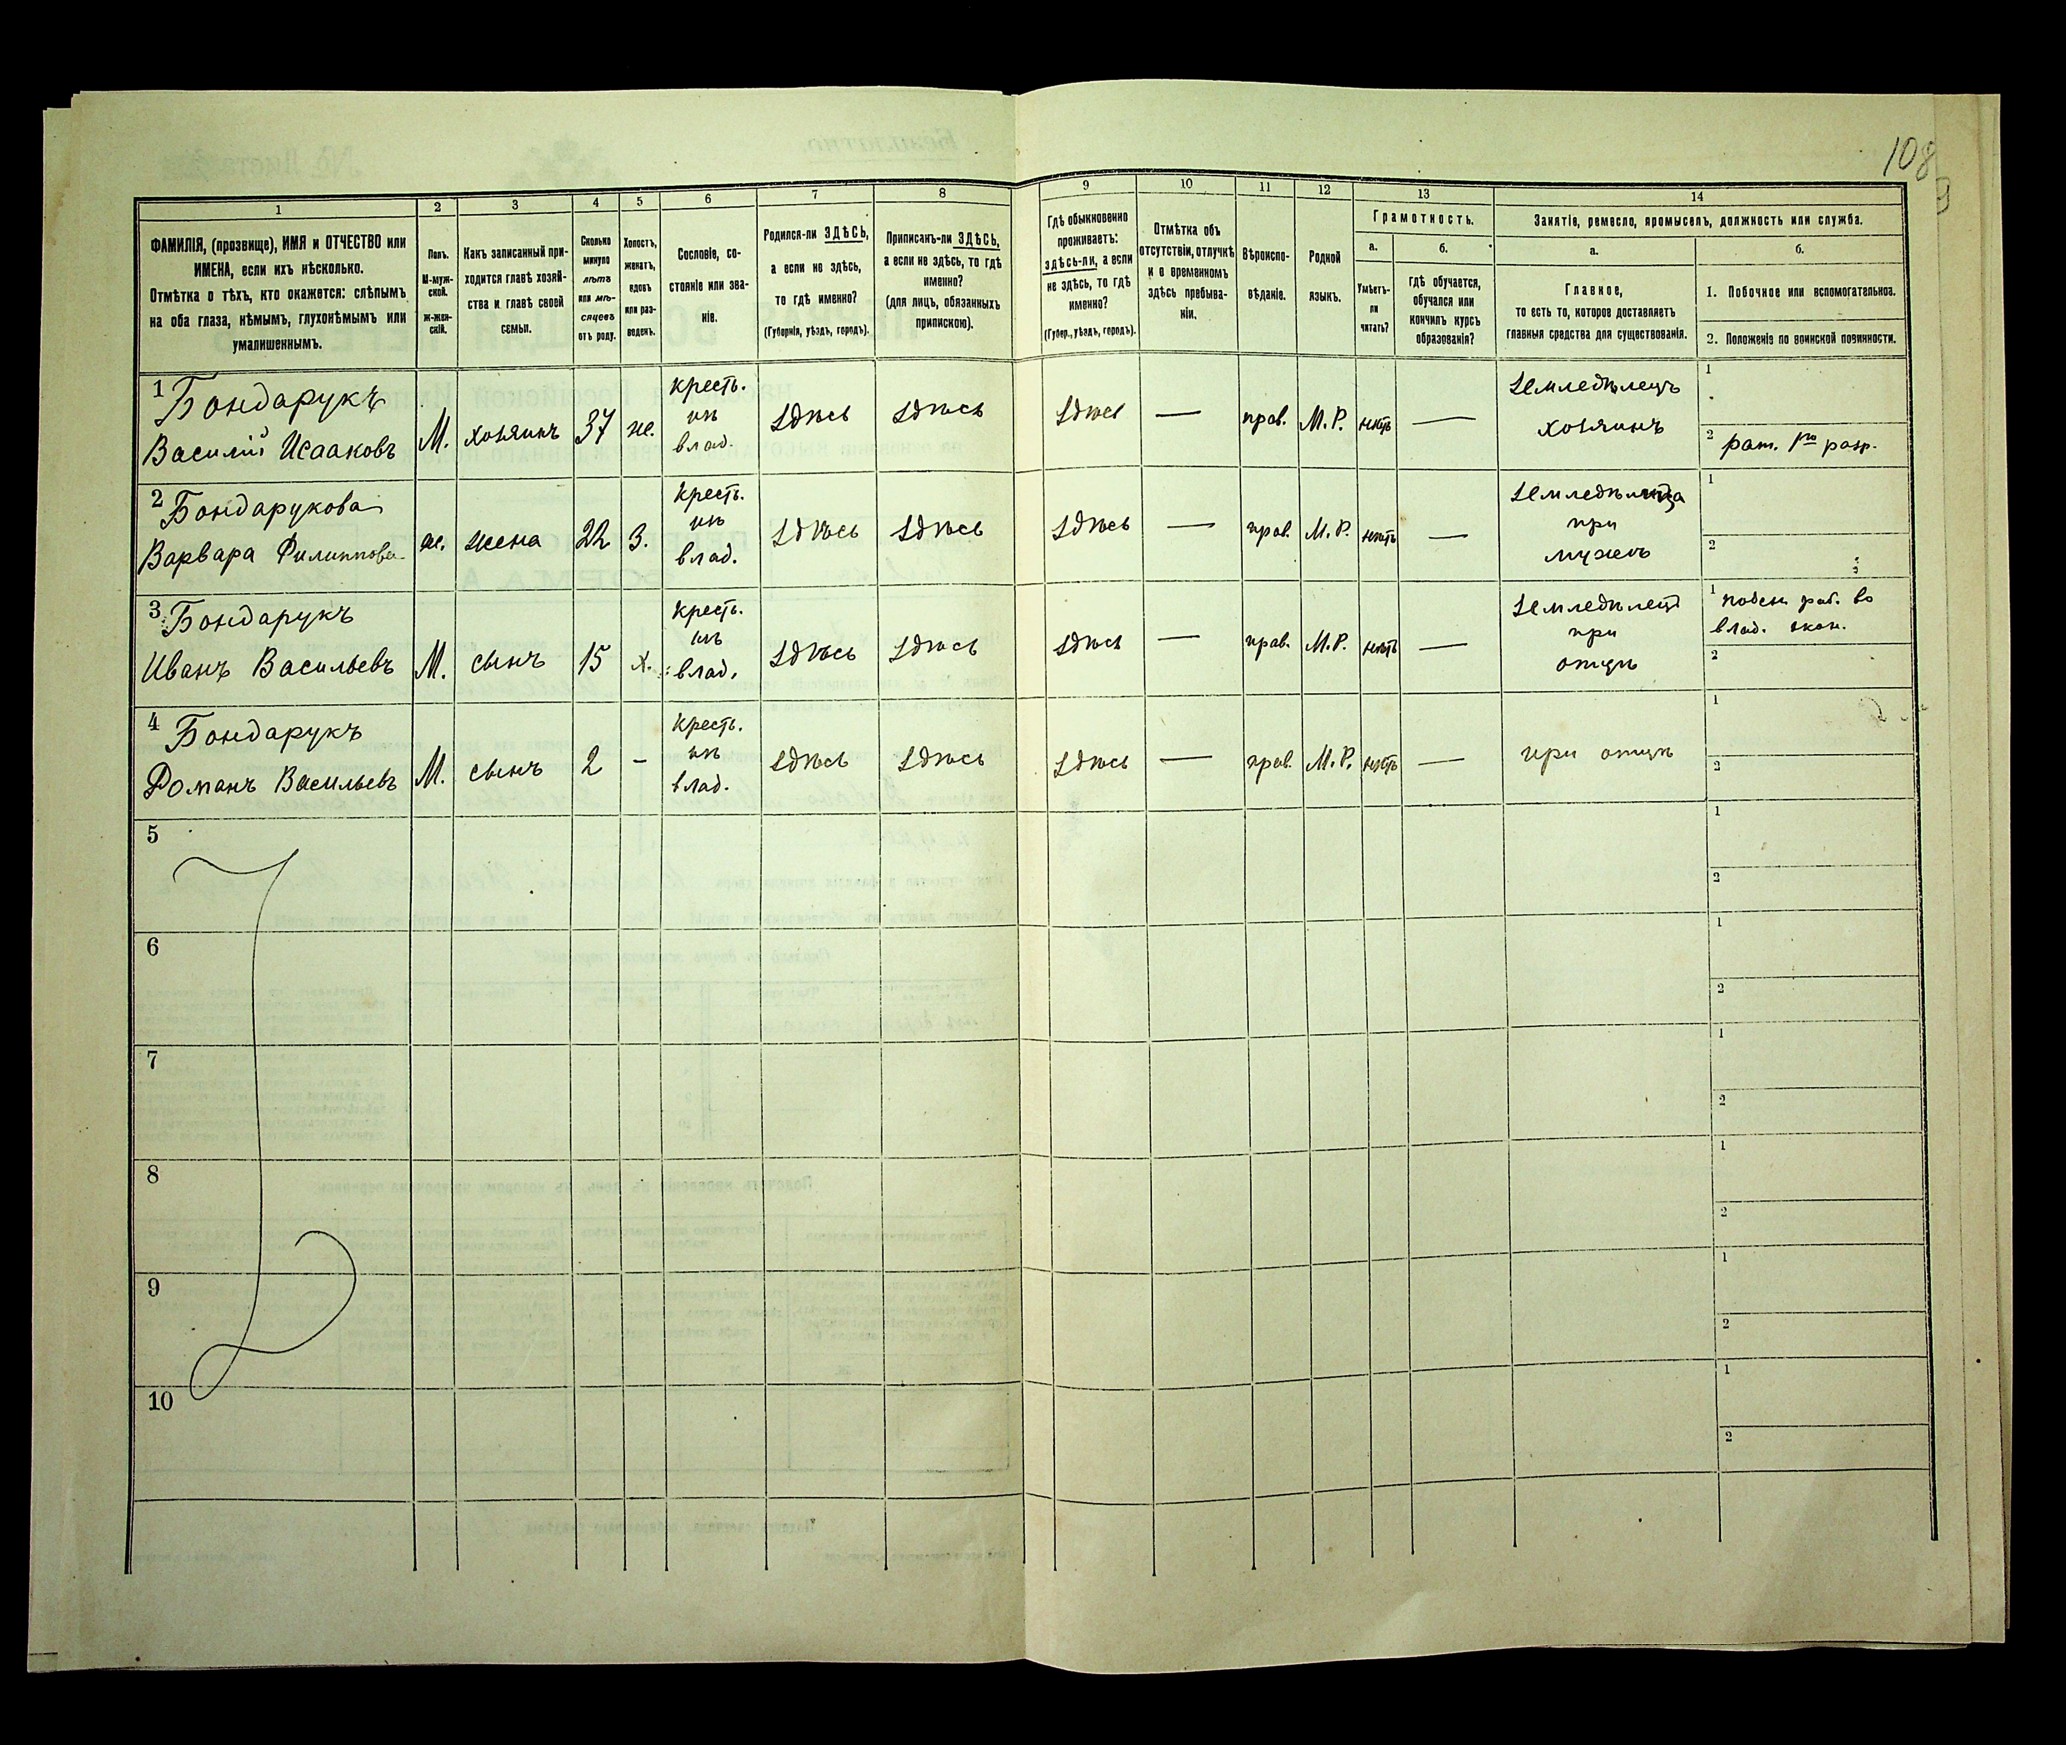 108
1
2
3
4
5
6
7
8
9
10
11
12
13
14
ФАМИЛІЯ, (прозвище), ИМЯ и ОТЧЕСТВО или
ИМЕНА, если ихъ нѣсколько.
Отмѣтка о тѣхъ, кто окажется: слѣпымъ
на оба глаза, нѣмымъ, глухонѣмымъ или
умалишеннымъ.
Полъ.
М-муж-
ской.
ж-жен-
скій.
Какъ записанный при-
ходится главѣ хозяй-
ства и главѣ своей
семьи.
Сколько
минуло
лѣтъ
или мѣ-
сяцевъ
отъ роду.
Холостъ,
женатъ,
вдовъ
или раз-
веденъ.
Сословіе, со-
стояніе или зва-
ніе.
Родился-ли ЗДѢСЬ,
а если не здѣсь,
то гдѣ именно?
(Губернія, уѣздъ, городъ).
Приписанъ-ли ЗДѢСЬ,
а если не здѣсь, то гдѣ
именно?
(для лицъ, обязанныхъ
припискою).
Гдѣ обыкновенно
проживаетъ:
здѣсь-ли, а если
не здѣсь, то гдѣ
именно?
(Губер., уѣздъ, городъ).
Отмѣтка объ
отсутствіи, отлучкѣ
и о временномъ
здѣсь пребыва-
ніи.
Вѣроиспо-
вѣданіе.
Родной
языкъ.
Грамотность.
а.
б.
Умѣетъ-
ли
читать?
гдѣ обучается,
обучался или
кончилъ курсъ
образованія?
Занятіе, ремесло, промыселъ, должность или служба.
а.
б.
Главное,
то есть то, которое доставляетъ
главныя средства для существованія.
1. Побочное или вспомогательное.
2. Положеніе по воинской повинности.
1 Бондарукъ
Василій Исааковъ
М.
хозяинъ
37
же.
кресть.
изъ
влад.
здѣсь
здѣсь
здѣсь
—
прав.
М.Р.
нѣтъ
—
земледѣлецъ
хозяинъ
1
2 рат. 1го разр.
2 Бондарукова
Варвара Филиппова
ж.
жена
22
З.
кресть.
изъ
влад.
здѣсь
здѣсь
здѣсь
—
прав.
М.Р.
нѣтъ
—
земледѣлица
при
мужѣ
1
2
3 Бондарукъ
Иванъ Васильевъ
М.
сынъ
15
х.
кресть.
изъ
влад.
здѣсь
здѣсь
здѣсь
—
прав.
М.Р.
нѣтъ
—
земледѣлецъ
при
отцѣ
1 поден. раб. во
влад. экон.
2
4 Бондарукъ
Романъ Васильевъ
М.
сынъ
2
–
кресть.
изъ
влад.
здѣсь
здѣсь
здѣсь
—
прав.
М.Р.
нѣтъ
—
при отцѣ
1
2
5
1
2
6
1
2
7
1
2
8
1
2
9
1
2
10
1
2